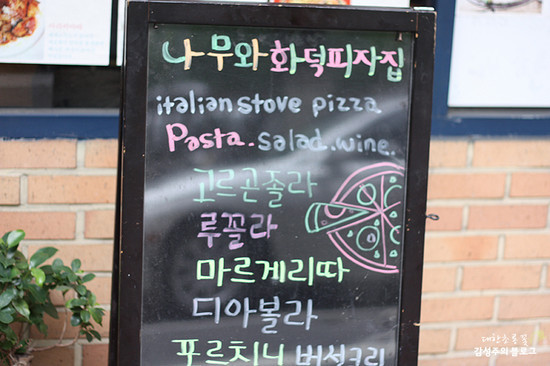 나무와 화덕피자집
italian stove pizza
Pasta. salad. wine.
고르곤졸라
루꼴라
마르게리따
디아볼라
푸르치니 버섯크리
김성주의 블로그